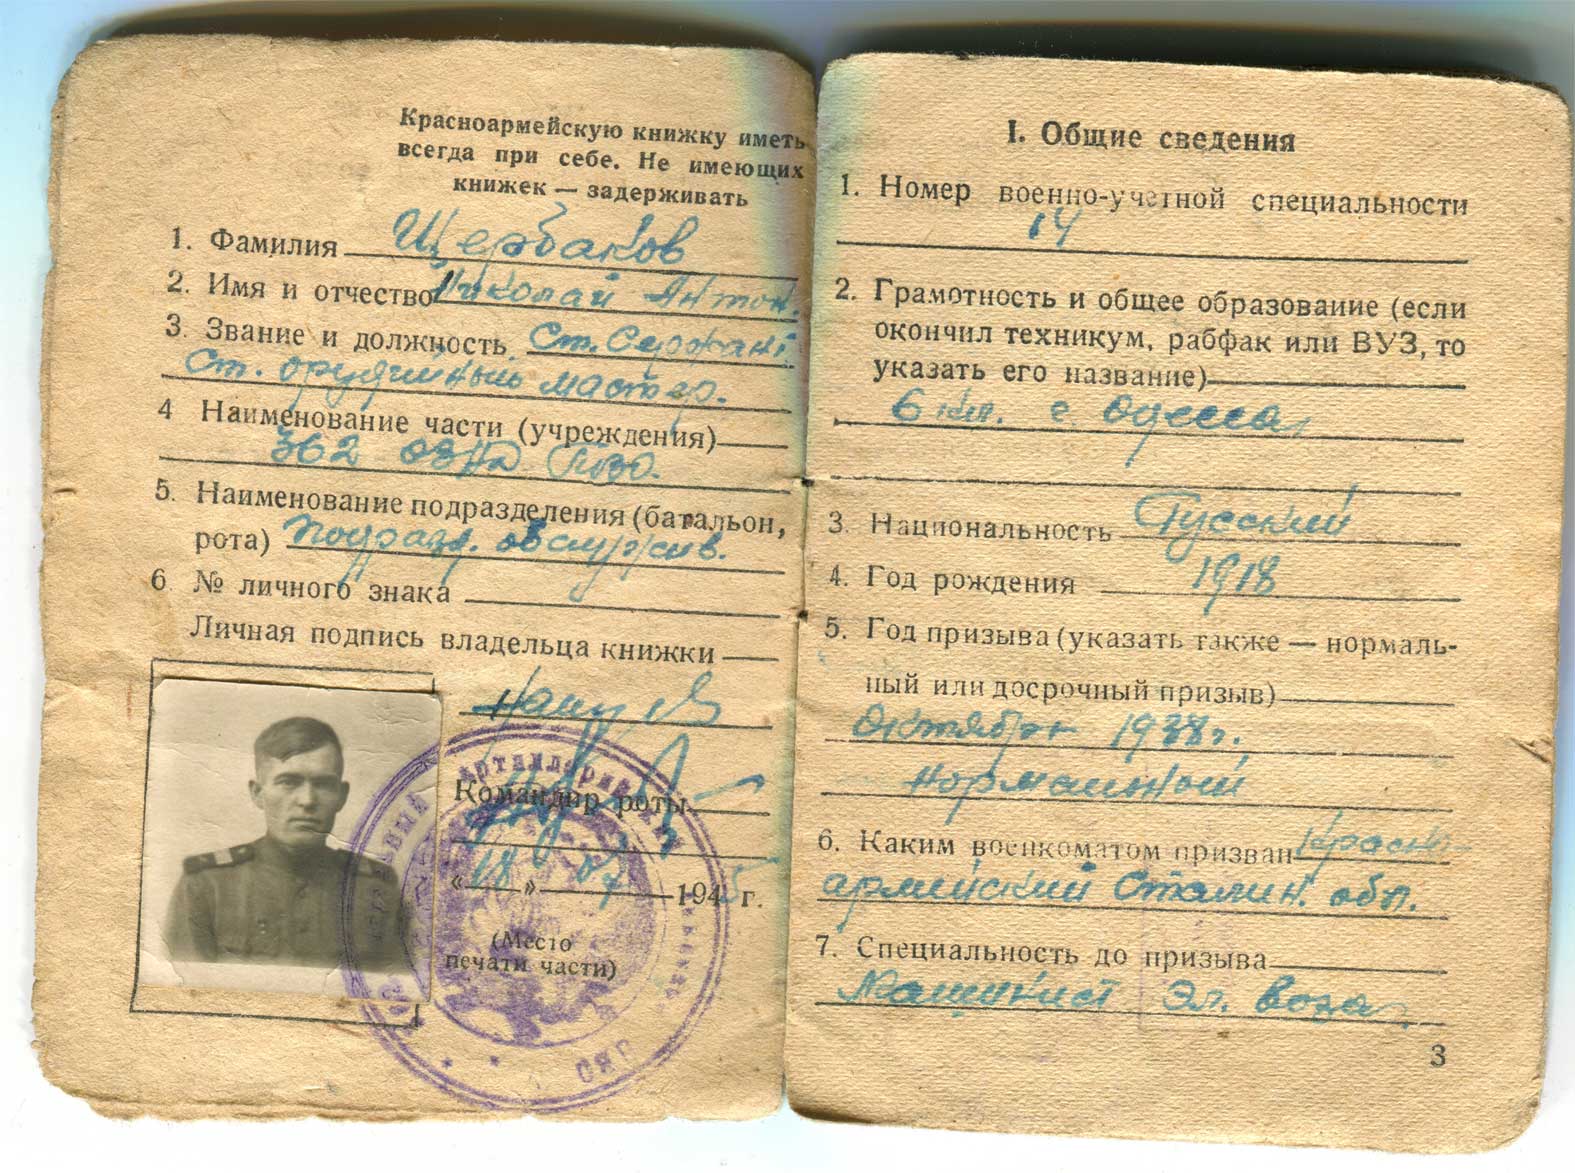 Красноармейскую книжку иметь
всегда при себе. Не имеющих
книжек — задерживать
1. Фамилия Щербаков
2. Имя и отчество Николай Антон.
3. Звание и должность Ст. Сержант
Ст. орудийный мастер.
4 Наименование части (учреждения)
362 ОЗАД ПВО.
5. Наименование подразделения (батальон,
рота) Подразд. обслужив.
6. № личного знака
Личная подпись владельца книжки
Командир роты
«18» 07 1945 г.
(Место
печати части)
Артиллерийский
ПВО
I. Общие сведения
1. Номер военно-учетной специальности
14
2. Грамотность и общее образование (если
окончил техникум, рабфак или ВУЗ, то
указать его название)
6 кл. г. Одесса
3. Национальность Русский
4. Год рождения 1918
5. Год призыва (указать также — нормаль-
ный или досрочный призыв)
Октябрь 1938 г.
нормальный
6. Каким военкоматом призван Красно-
армейский Сталин. обл.
7. Специальность до призыва
Машинист Эл. воза
3